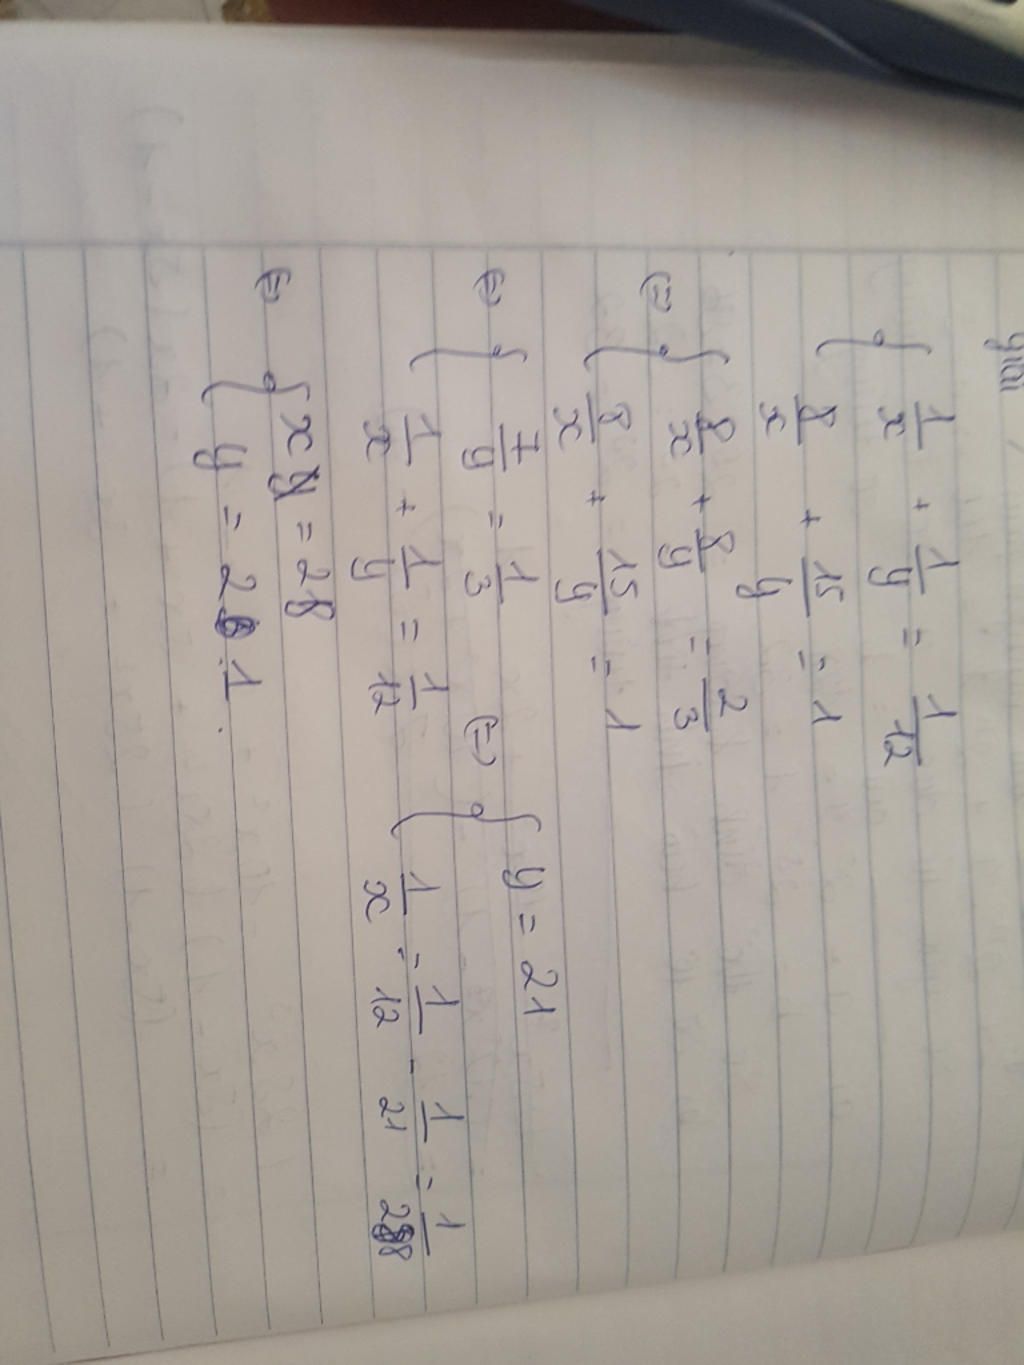 giải
{ 1/x + 1/y = 1/12
8/x + 15/y = 1
(=) { 8/x + 8/y = 2/3
8/x + 15/y = 1
(=) { 7/y = 1/3
1/x + 1/y = 1/12
(=) { y = 21
1/x = 1/12 - 1/21 = 1/28
(=) { x = 28
y = 21.